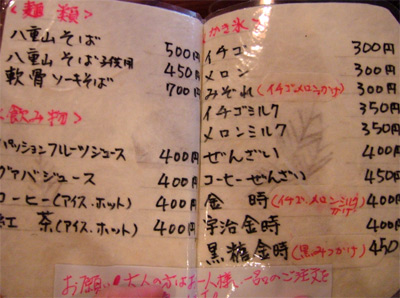 <麺類>
八重山そば 500円
八重山そば子供用 450円
軟骨ソーキそば 700円
飲み物>
パッションフルーツジュース 400円
グァバジュース 400円
コーヒー(アイス.ホット) 400円
紅茶(アイス.ホット) 400円
<かき氷>
イチゴ 300円
メロン 300円
みぞれ(イチゴ.メロンつかけ) 300円
イチゴミルク 350円
メロンミルク 350円
ぜんざい 400円
コーヒーぜんざい 450円
金時(イチゴ.メロン.ミルクかけ) 400円
宇治金時 400円
黒糖金時(黒みつかけ) 450
お願い 大人の方はお一人様、一品のご注文を